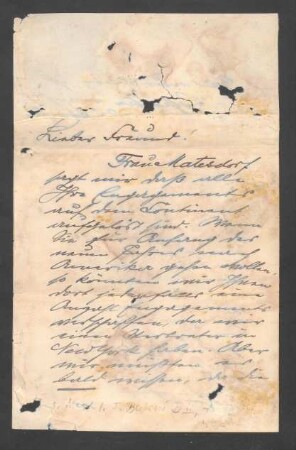 Lieber Freund!
Frau Matesdorf
sagt mir daß alle
Ihre Engagements
auf dem Continent
aufgelöst sind. Wenn
Sie zur Anfang der
neuen Saison nach
Amerika gehen wollen
so könnten wir Ihnen
dort jedenfalls eine
Anzahl Engagements
verschaffen, da wir
einen Vertreter in
New York haben. Aber
wir müssten es
bald wissen, da die